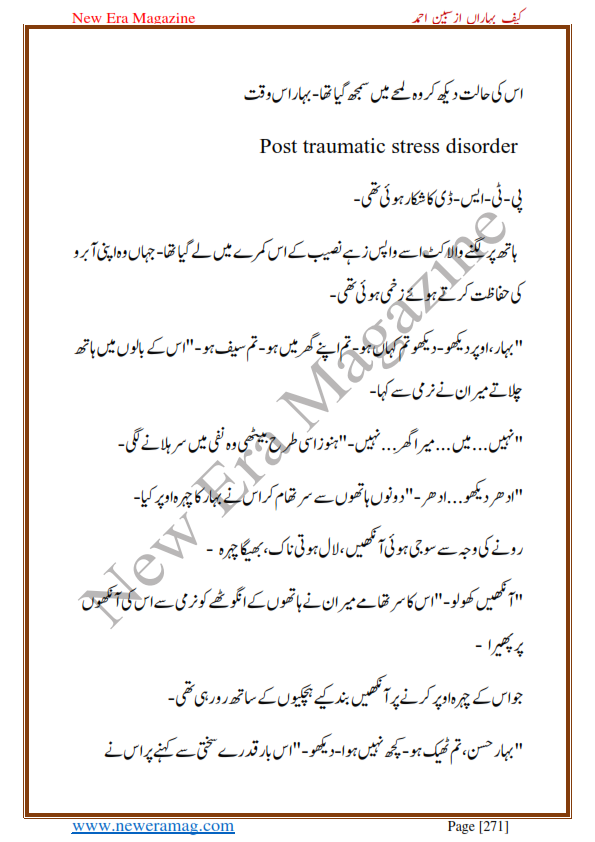 New Era Magazine کیف بہاراں از سبین احمد
اس کی حالت دیکھ کر وہ لمحے میں سمجھ گیا تھا- بہار اس وقت
Post traumatic stress disorder
پی-ٹی-ایس-ڈی کا شکار ہوئی تھی-
ہاتھ پر لگنے والا کٹ اسے واپس زہے نصیب کے اس کمرے میں لے گیا تھا- جہاں وہ اپنی آبرو
کی حفاظت کرتے ہوئے زخمی ہوئی تھی-
"بہار، اوپر دیکھو- دیکھو تم کہاں ہو- تم اپنے گھر میں ہو- تم سیف ہو-" اس کے بالوں میں ہاتھ
چلاتے میران نے نرمی سے کہا-
"نہیں... میں... میرا گھر... نہیں-" ہنوز اسی طرح بیٹھی وہ نفی میں سر ہلانے لگی-
"ادھر دیکھو... ادھر-" دونوں ہاتھوں سے سر تھام کر اس نے بہار کا چہرہ اوپر کیا-
رونے کی وجہ سے سوجی ہوئی آنکھیں، لال ہوتی ناک، بھیگا چہرہ -
"آنکھیں کھولو-" اس کا سر تھامے میران نے ہاتھوں کے انگوٹھے کو نرمی سے اس کی آنکھوں
پر پھیرا -
جو اس کے چہرہ اوپر کرنے پر آنکھیں بند کیے ہچکیوں کے ساتھ رو رہی تھی-
"بہار حسن، تم ٹھیک ہو- کچھ نہیں ہوا- دیکھو-" اس بار قدرے سختی سے کہنے پر اس نے
New Era Magazine
www.neweramag.com Page [271]